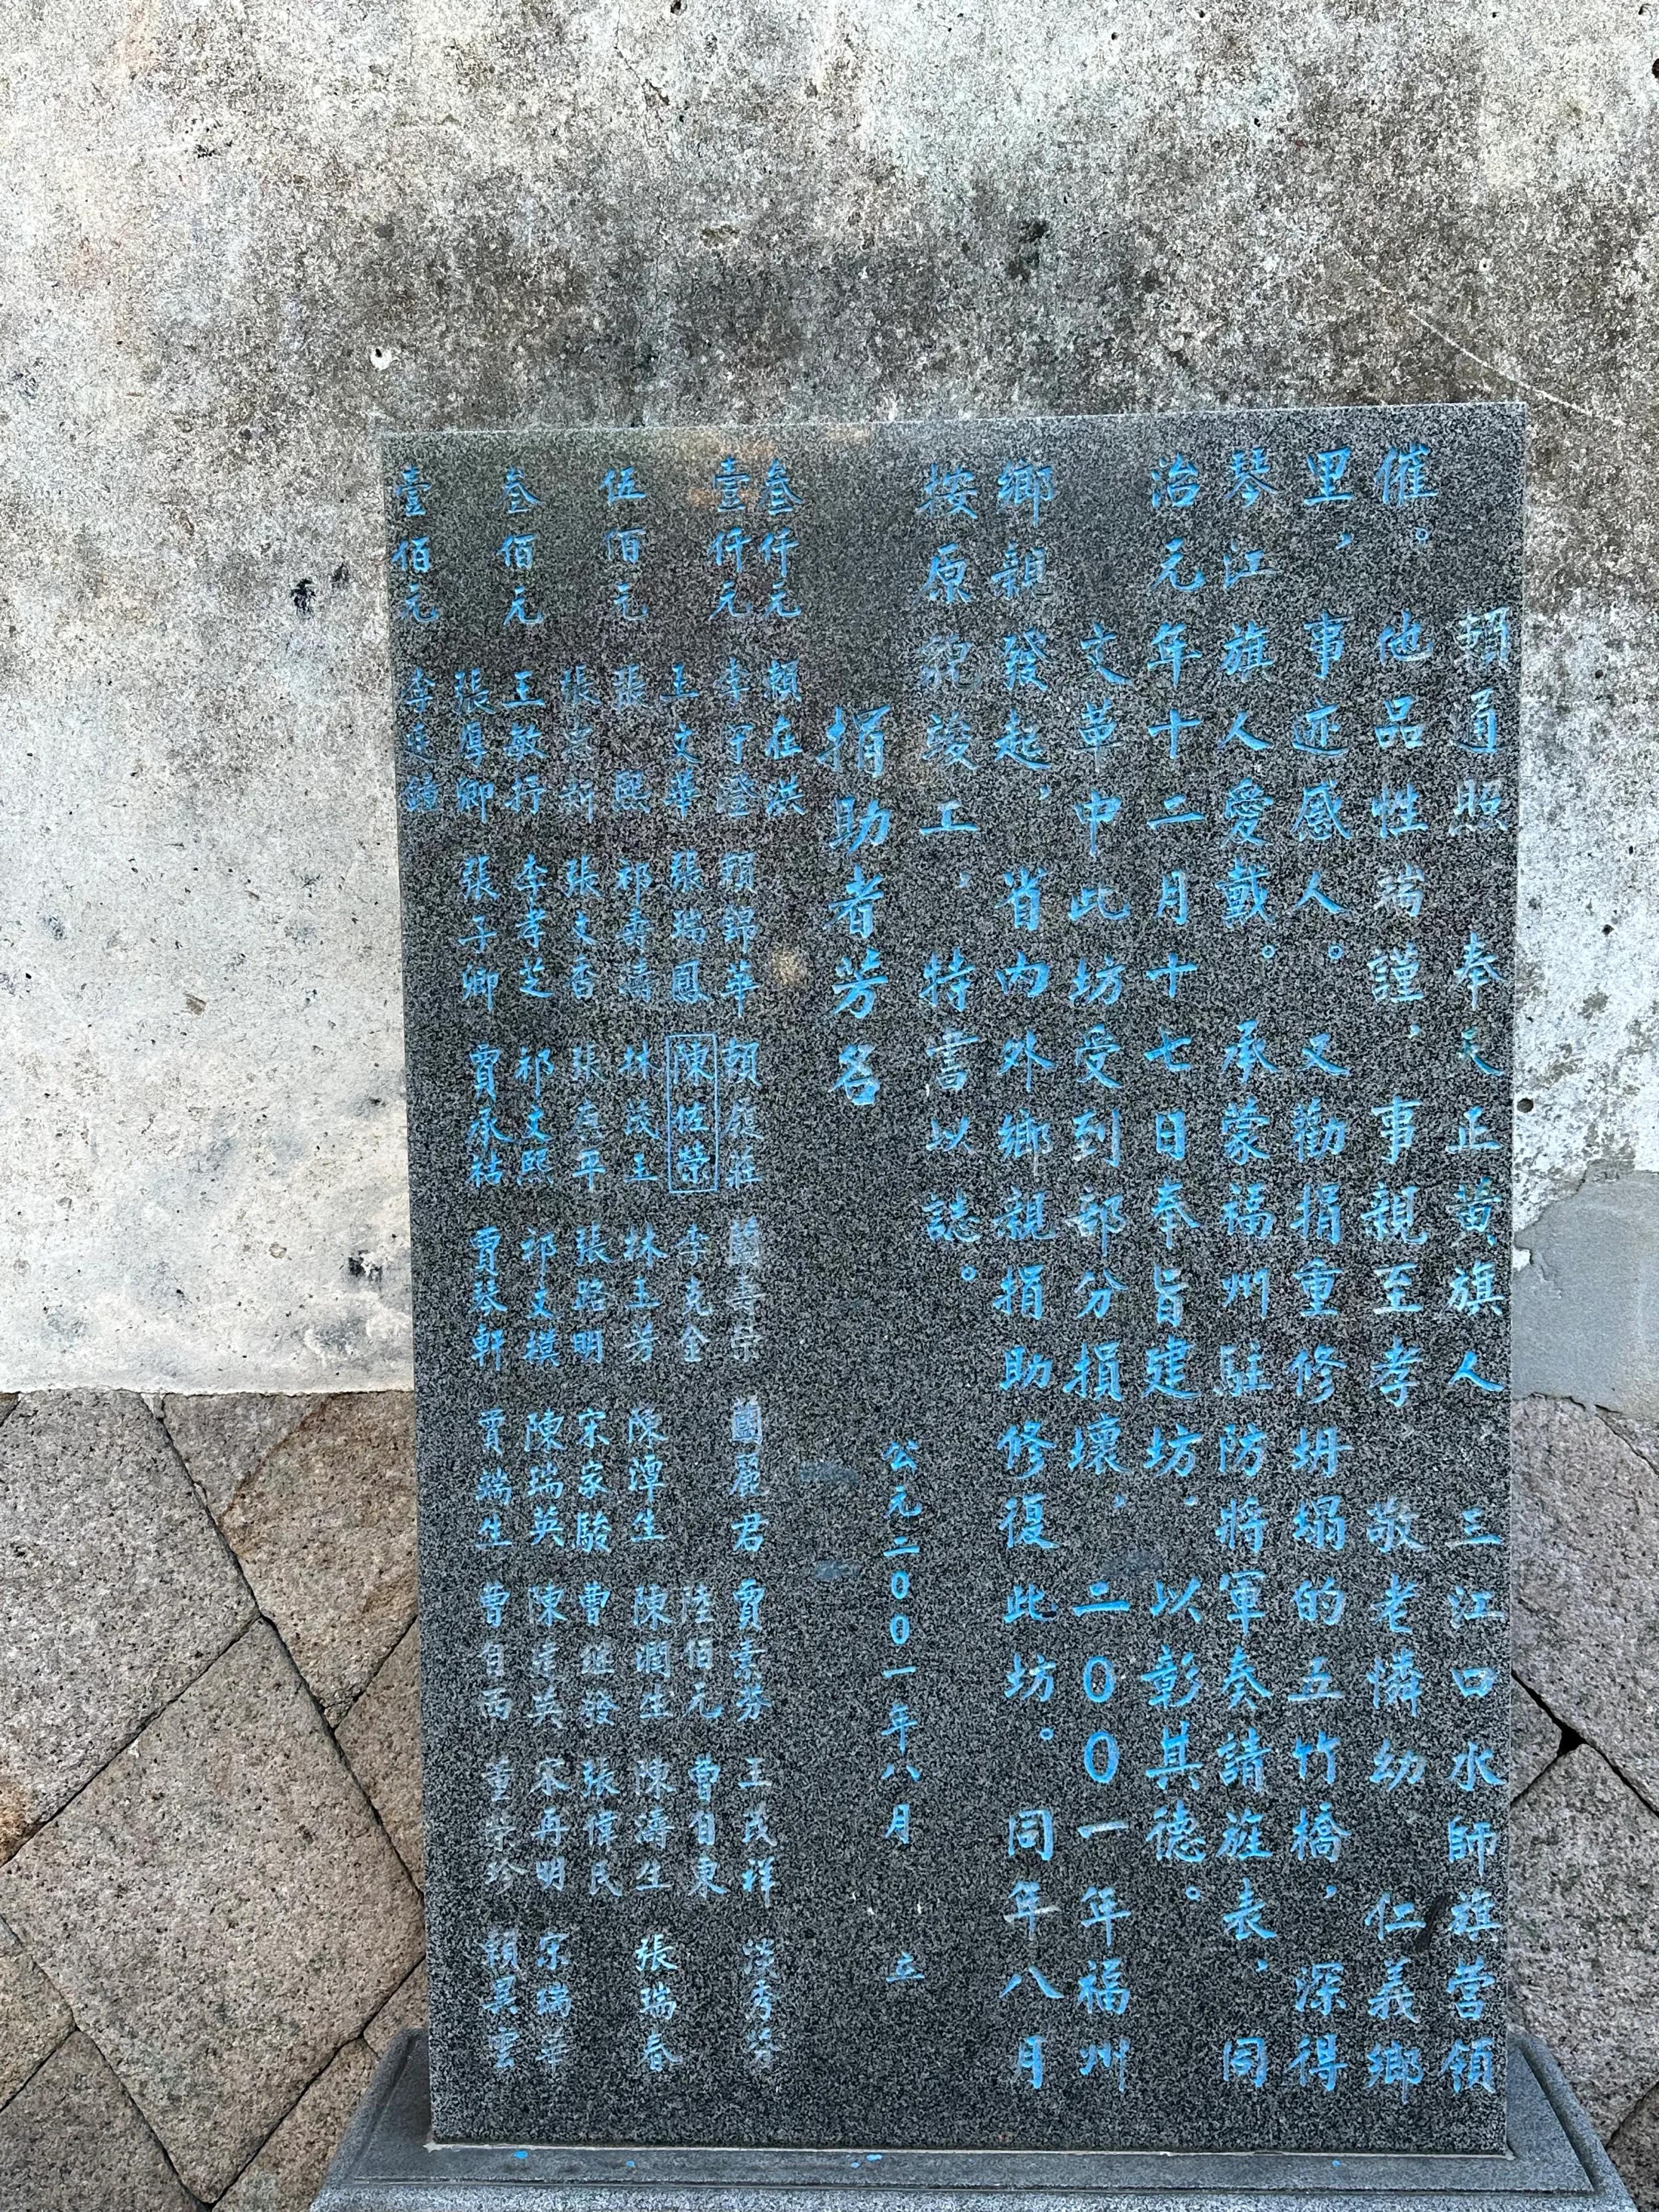 賴通照 奉天正黃旗人 三江口水師旗營領
催。他品性端謹、事親至孝 敬老憐幼 仁義鄉
里，事迹感人。又勸捐重修坍塌的五竹橋，深得
琴江旗人愛戴。承蒙福州駐防將軍奏請旌表、同
治元年十二月十七日奉旨建坊、以彰其德。
文革中此坊受到部分損壞、二00一年福州
鄉親發起、省內外鄉親捐助修復此坊。同年八月
按原貌竣工、特書以誌。
公元二00一年八月 立
捐助者芳名
叁仟元 賴在洪
壹仟元 李守澄 賴錦華 賴履莊 藺壽榮 藺麗君 賈素芬 王茂祥 淡秀琴
王文華 張瑞鳳 陳佐榮 李克全 陸佰元 曹自東
伍佰元 張熙 祁壽濤 林茂玉 林玉芳 陳潭生 陳潤生 陳濤生 張瑞春
張崇新 張文香 張建平 張路明 宋家駿 曹繼發 張偉民
叁佰元 王敏行 李孝芝 祁文熙 祁文模 陳瑞英 陳崇英 宋再明 宋瑞華
張厚卿 張子卿 賈承祜 賈琴軒 賈端生 曹自西 董崇珍 賴昊雲
壹佰元 李廷鏞